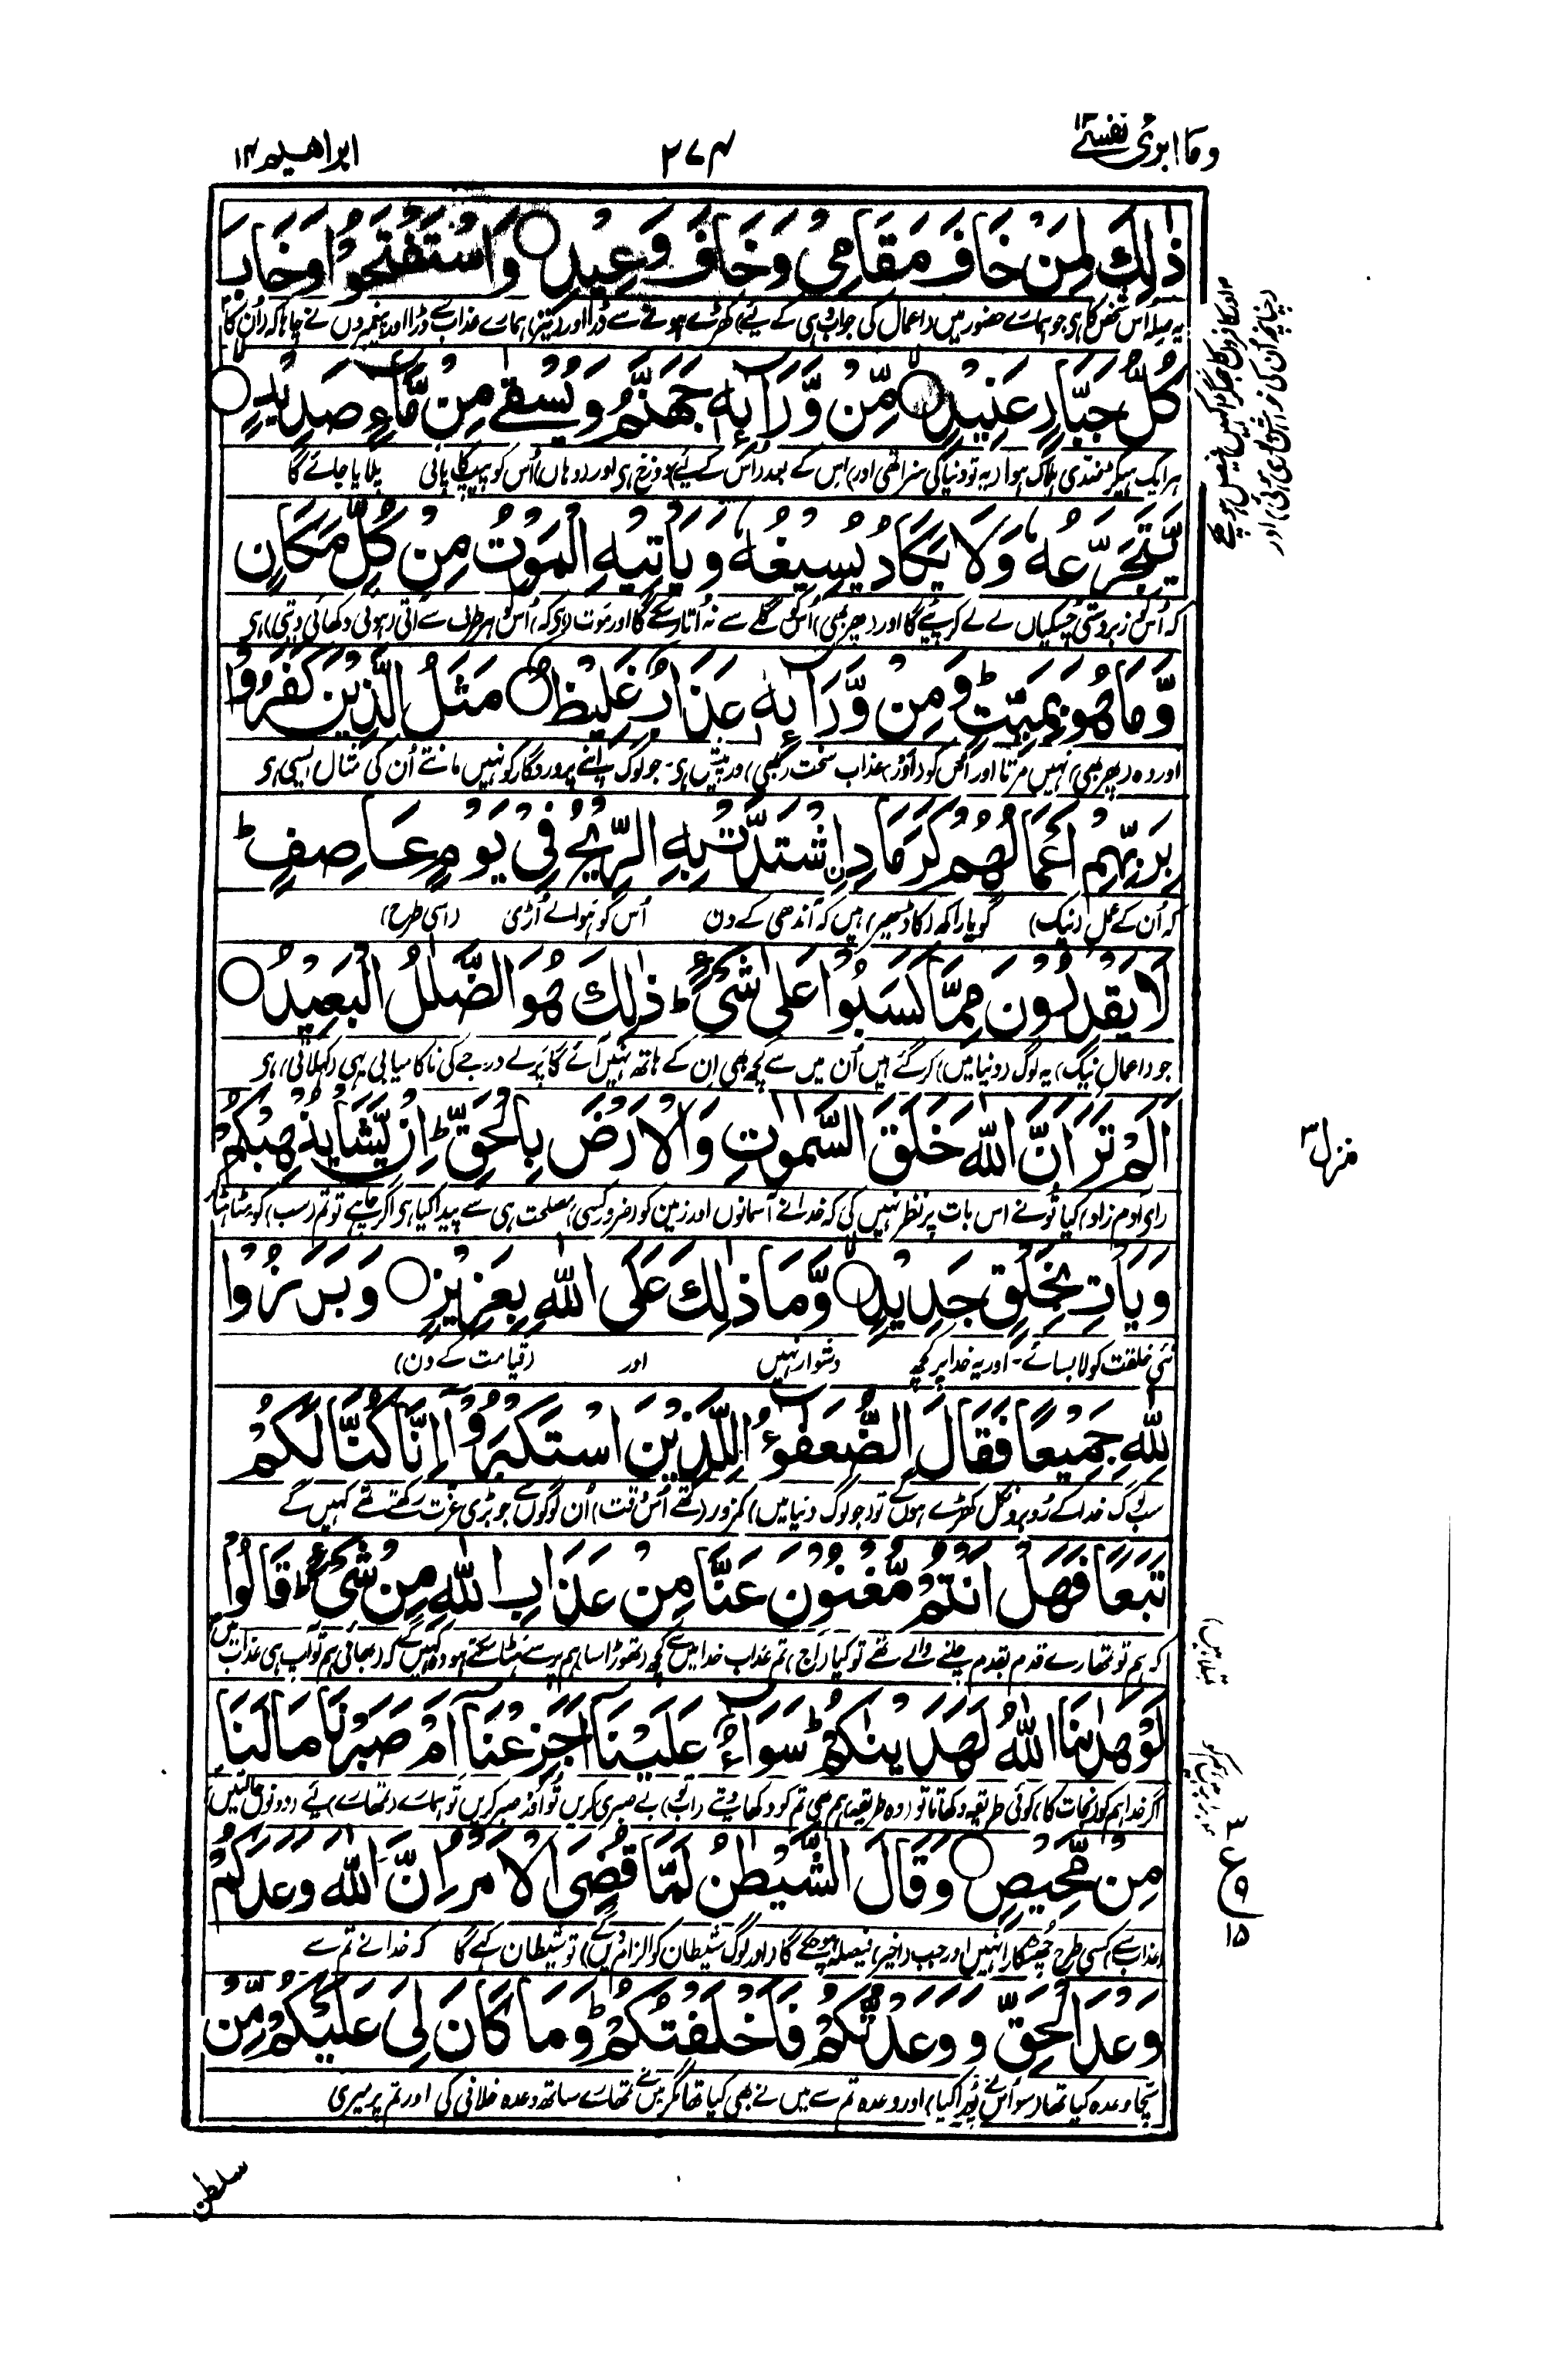 وما ابرئ نفسی ۱۳
۲۷۴
ابراهیم ۱۴
ذٰلِكَ لِمَنْ خَافَ مَقَامِیْ وَخَافَ وَعِیْدِ ○ وَاسْتَفْتَحُوْا وَخَابَ
یہ صلہ اُس شخص کا ہی جو ہمارے حضور میں (اعمال کی جوابدہی کے لیے) کھڑے ہونے سے ڈرا اور (نیز) ہمارے عذاب سے ڈرا اور پیغمبروں نے چاہا کہ (اُن کا
كُلُّ جَبَّارٍ عَنِیْدٍ ○ مِّنْ وَّرَآىِٕهٖ جَهَنَّمُ وَیُسْقٰی مِنْ مَّآءٍ صَدِیْدٍ ○
ہر ایک ہیکڑ ضدی ہلاک ہوا (یہ تو دنیا کی سزا تھی اور) اس کے بعد (اُس کے لیے) دوزخ ہی اور (وہاں) اُس کو پیپ کا پانی پلایا جائے گا
یَّتَجَرَّعُهٗ وَلَا یَكَادُ یُسِیْغُهٗ وَیَاْتِیْهِ الْمَوْتُ مِنْ كُلِّ مَكَانٍ
کہ اُس کو زبردستی چسکیاں لے لے کر پیے گا اور (پھر بھی) اُس کو گلے سے نہ اُتار سکے گا اور موت (ہی کہ) اُس کو ہر طرف سے آتی (ہوئی دکھائی دیتی) ہی
وَّمَا هُوَ بِمَیِّتٍ ؕ وَمِنْ وَّرَآىِٕهٖ عَذَابٌ غَلِیْظٌ ○ مَثَلُ الَّذِیْنَ كَفَرُوْا
اور وہ (پھر بھی) نہیں مرتا اور اُس کو (اور) عذاب سخت (بھی) درپیش ہی۔ جو لوگ اپنے پروردگار کو نہیں مانتے اُن کی مثال ایسی ہی
بِرَبِّهِمْ اَعْمَالُهُمْ كَرَمَادِ ۟اشْتَدَّتْ بِهِ الرِّیْحُ فِیْ یَوْمٍ عَاصِفٍ ؕ
کہ اُن کے عمل (نیک) گویا راکھ (کا ڈھیر) ہیں کہ آندھی کے دن اُس کو ہوا لے اُڑی (اسی طرح)
لَا یَقْدِرُوْنَ مِمَّا كَسَبُوْا عَلٰی شَیْءٍ ؕ ذٰلِكَ هُوَ الضَّلٰلُ الْبَعِیْدُ ○
جو (اعمال نیک) یہ لوگ (دنیا میں) کر گئے ہیں اُن میں سے کچھ بھی اِن کے ہاتھ نہیں آئے گا پرلے درجے کی ناکامیابی یہی (کہلاتی) ہی
اَلَمْ تَرَ اَنَّ اللّٰهَ خَلَقَ السَّمٰوٰتِ وَالْاَرْضَ بِالْحَقِّ ؕ اِنْ یَّشَاْ یُذْهِبْكُمْ
(اے آدم زاد) کیا تُو نے اس بات پر نظر نہیں کی کہ خدا نے آسمانوں اور زمین کو (ضرور کسی) مصلحت ہی سے پیدا کیا ہی اگر چاہے تو تم (سب) کو
وَیَاْتِ بِخَلْقٍ جَدِیْدٍ ○ وَّمَا ذٰلِكَ عَلَی اللّٰهِ بِعَزِیْزٍ ○ وَبَرَزُوْا
نئی خلقت کو لا بسائے۔ اور یہ خدا پر کچھ دشوار نہیں اور (قیامت کے دن)
لِلّٰهِ جَمِیْعًا فَقَالَ الضُّعَفٰٓؤُا لِلَّذِیْنَ اسْتَكْبَرُوْۤا اِنَّا كُنَّا لَكُمْ
سب لوگ خدا کے رُوبرو نکل کھڑے ہوں گے تو (جو لوگ دنیا میں) کمزور (تھے اُس وقت) اُن لوگوں سے جو بڑی عزت رکھتے تھے کہیں گے
تَبَعًا فَهَلْ اَنْتُمْ مُّغْنُوْنَ عَنَّا مِنْ عَذَابِ اللّٰهِ مِنْ شَیْءٍ ؕ قَالُوْا
کہ ہم تو تمہارے قدم بقدم چلنے والے تھے تو کیا (آج) تم عذاب خدا میں سے کچھ (تھوڑا سا) ہم پر سے ہٹا سکتے ہو وہ کہیں گے کہ (بھائی ہم تو آپ ہی عذاب میں
لَوْ هَدٰىنَا اللّٰهُ لَهَدَیْنٰكُمْ ؕ سَوَآءٌ عَلَیْنَاۤ اَجَزِعْنَاۤ اَمْ صَبَرْنَا مَا لَنَا
اگر خدا ہم کو (نجات کا) کوئی طریقہ دکھاتا تو (وہ طریقہ) ہم بھی تم کو دکھا دیتے (اب تو) بے صبری کریں تو اور صبر کریں تو ہمارے (تمہارے) لیے (دونوں حالتیں)
مِنْ مَّحِیْصٍ ○ وَقَالَ الشَّیْطٰنُ لَمَّا قُضِیَ الْاَمْرُ اِنَّ اللّٰهَ وَعَدَكُمْ
(عذاب سے) کسی طرح چھٹکارا نہیں اور جب (اخیر) فیصلہ ہو چکے گا (اور لوگ شیطان کو الزام دیں گے) تو شیطان کہے گا کہ خدا نے تم سے
وَعْدَ الْحَقِّ وَوَعَدْتُّكُمْ فَاَخْلَفْتُكُمْ ؕ وَمَا كَانَ لِیَ عَلَیْكُمْ مِّنْ
سچا وعدہ کیا تھا (سو اُس نے پورا کیا) اور وعدہ تم سے میں نے بھی کیا تھا مگر میں نے تمہارے ساتھ وعدہ خلافی کی اور تم پر میری
منزل ۳
ع
۹
۱۵
سلطن